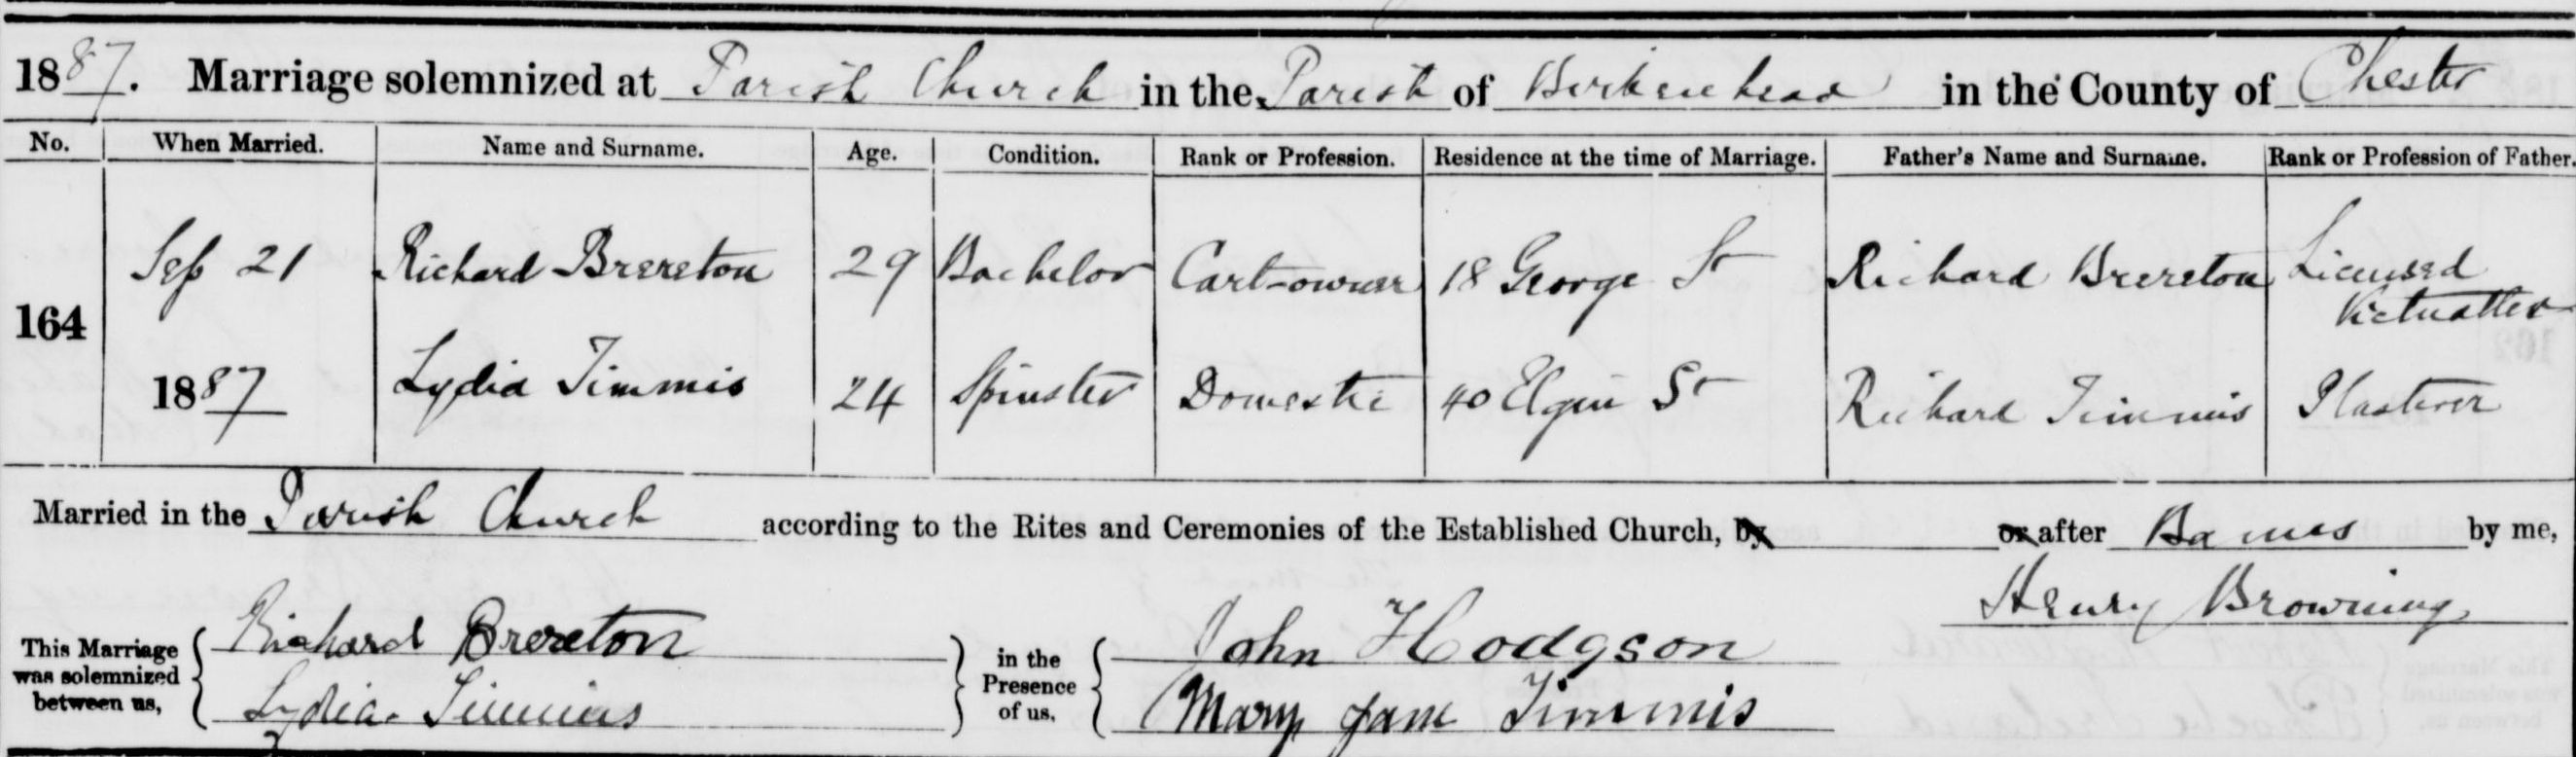 1887. Marriage solemnized at Parish Church in the Parish of Birkenhead in the County of Chester
No. When Married. Name and Surname. Age. Condition. Rank or Profession. Residence at the time of Marriage. Father's Name and Surname. Rank or Profession of Father.
164
Sep 21 Richard Brereton 29 Bachelor Cart-owner 18 George St Richard Brereton Licensed Victualler
1887 Lydia Timmis 24 Spinster Domestic 40 Elgin St Richard Timmis Plasterer
Married in the Parish Church according to the Rites and Ceremonies of the Established Church, by or after Banns by me,
Henry Browning
This Marriage was solemnized between us, { Richard Brereton } in the Presence of us, { John Hodgson
Lydia Timmins Mary Jane Timmis